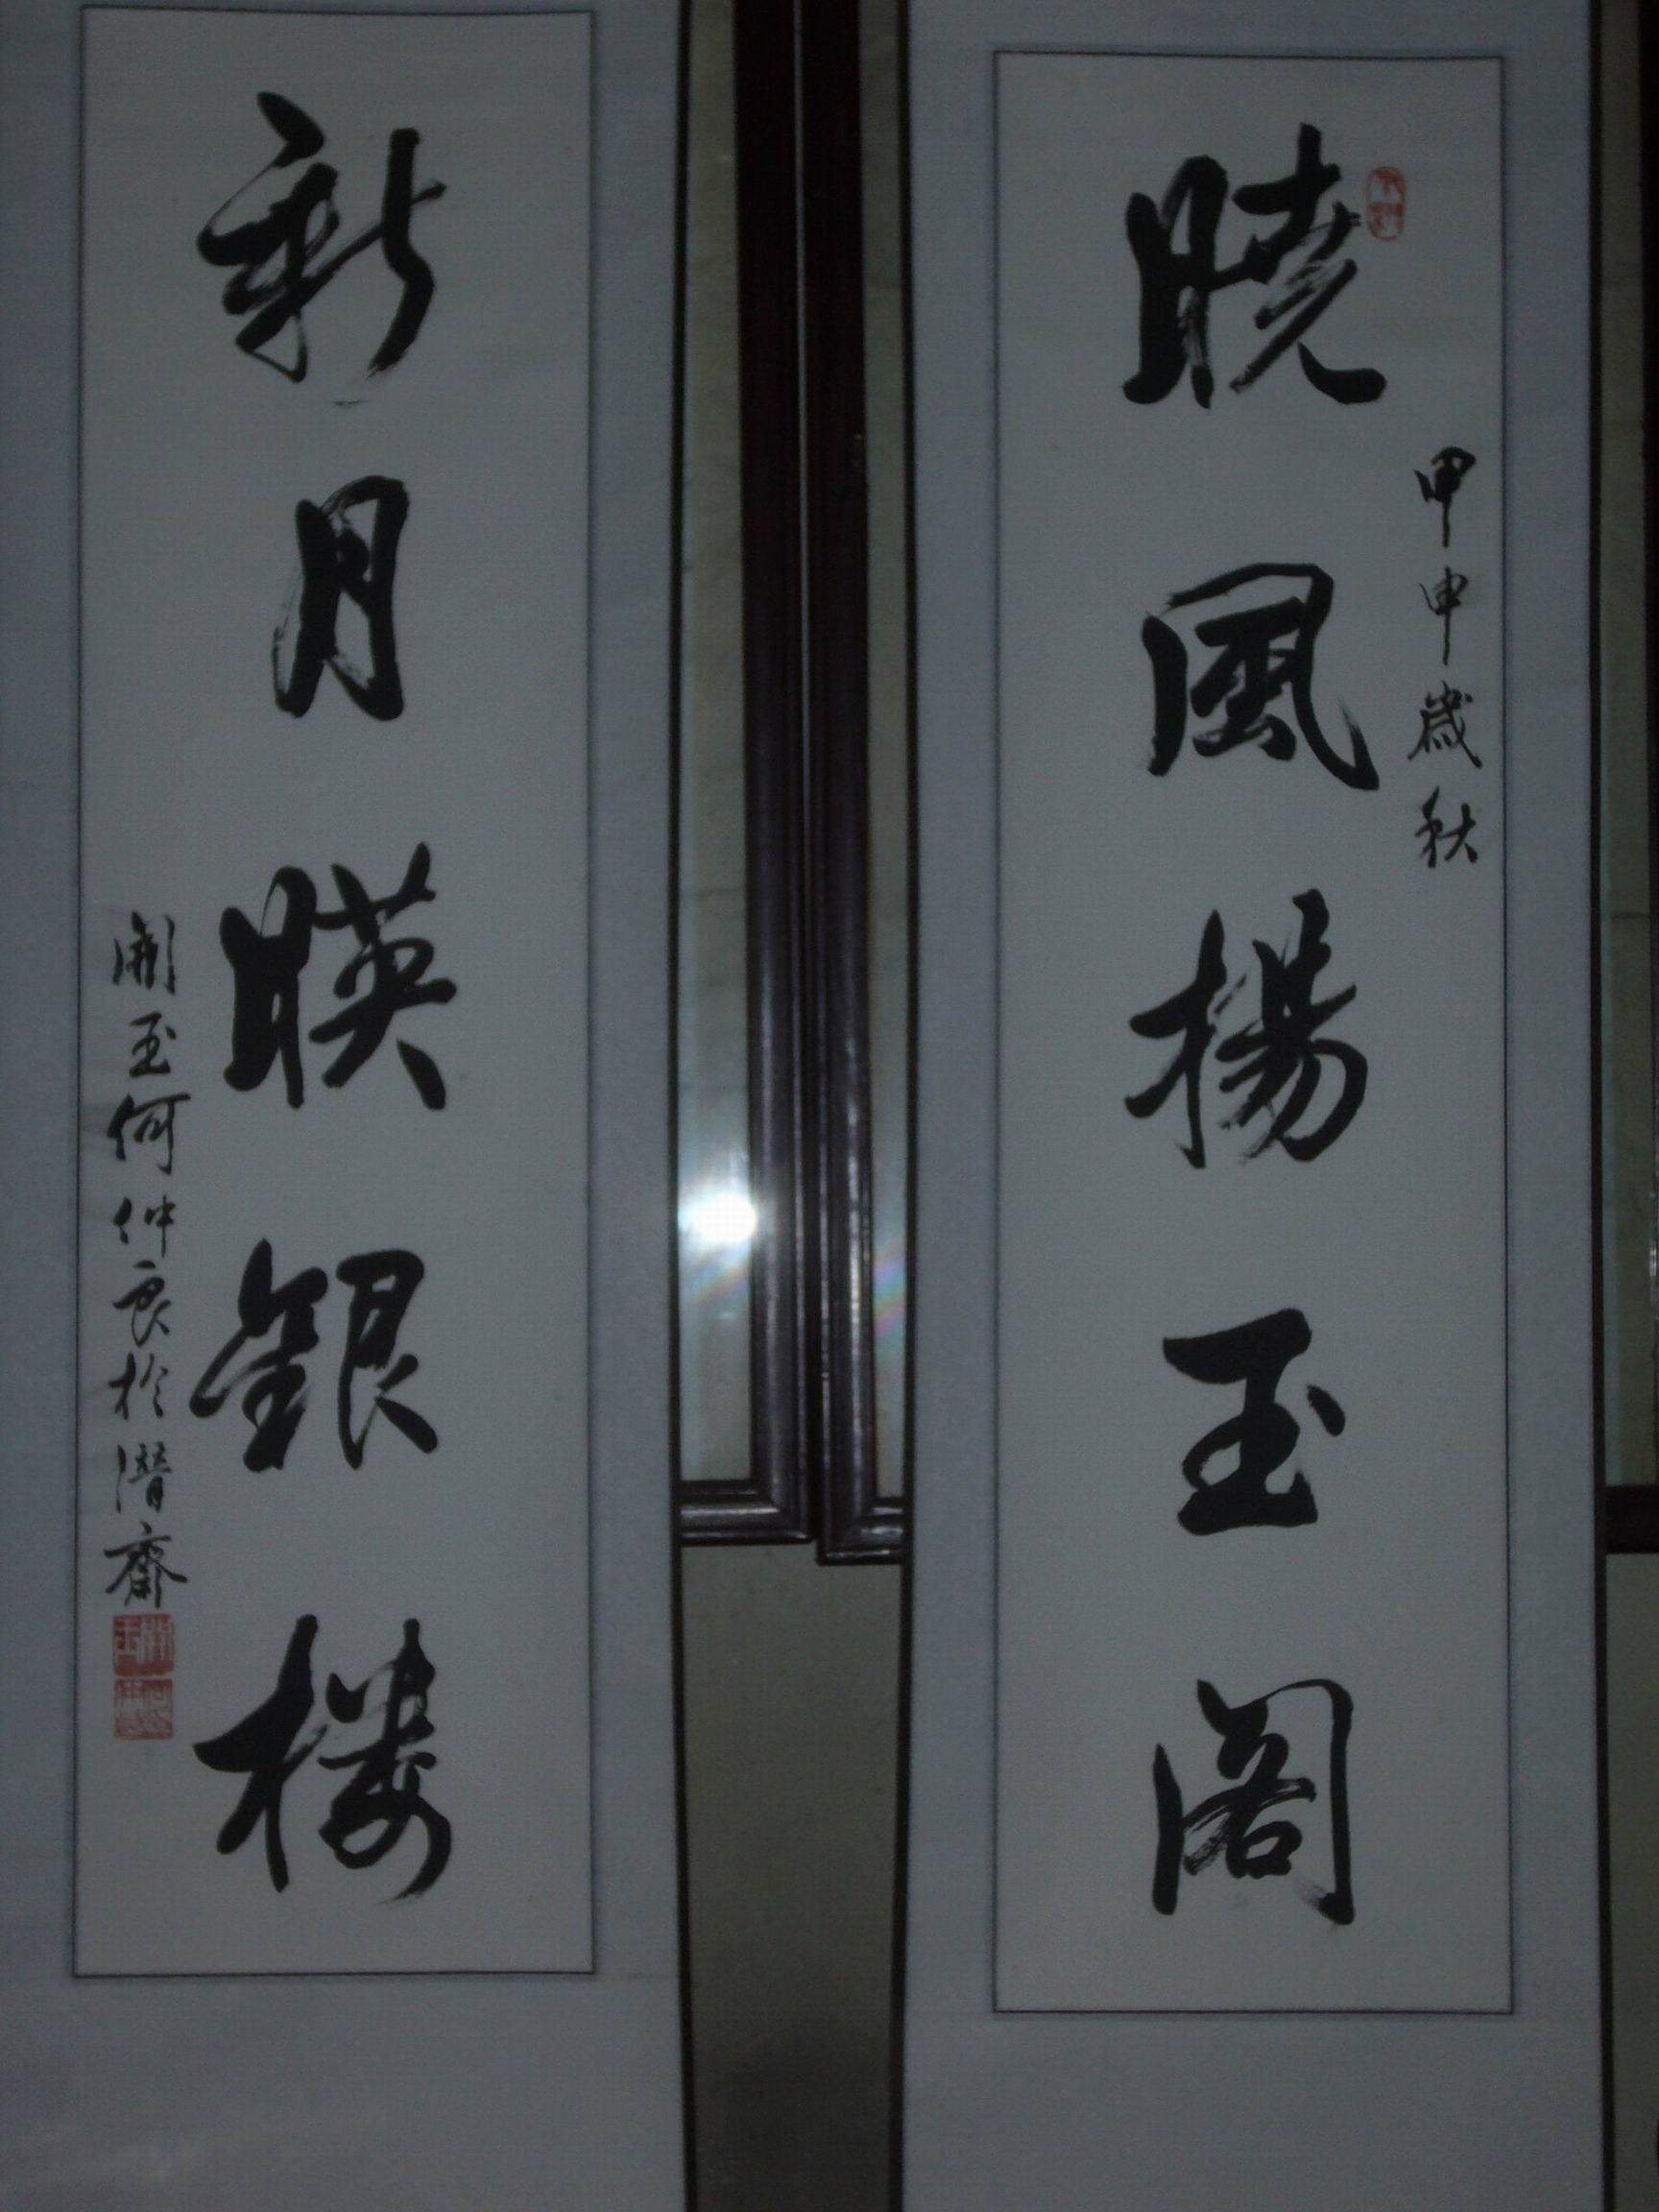 曉風揚玉阁
甲申歲秋
新月暎銀楼
開玉何仲良於潛齋